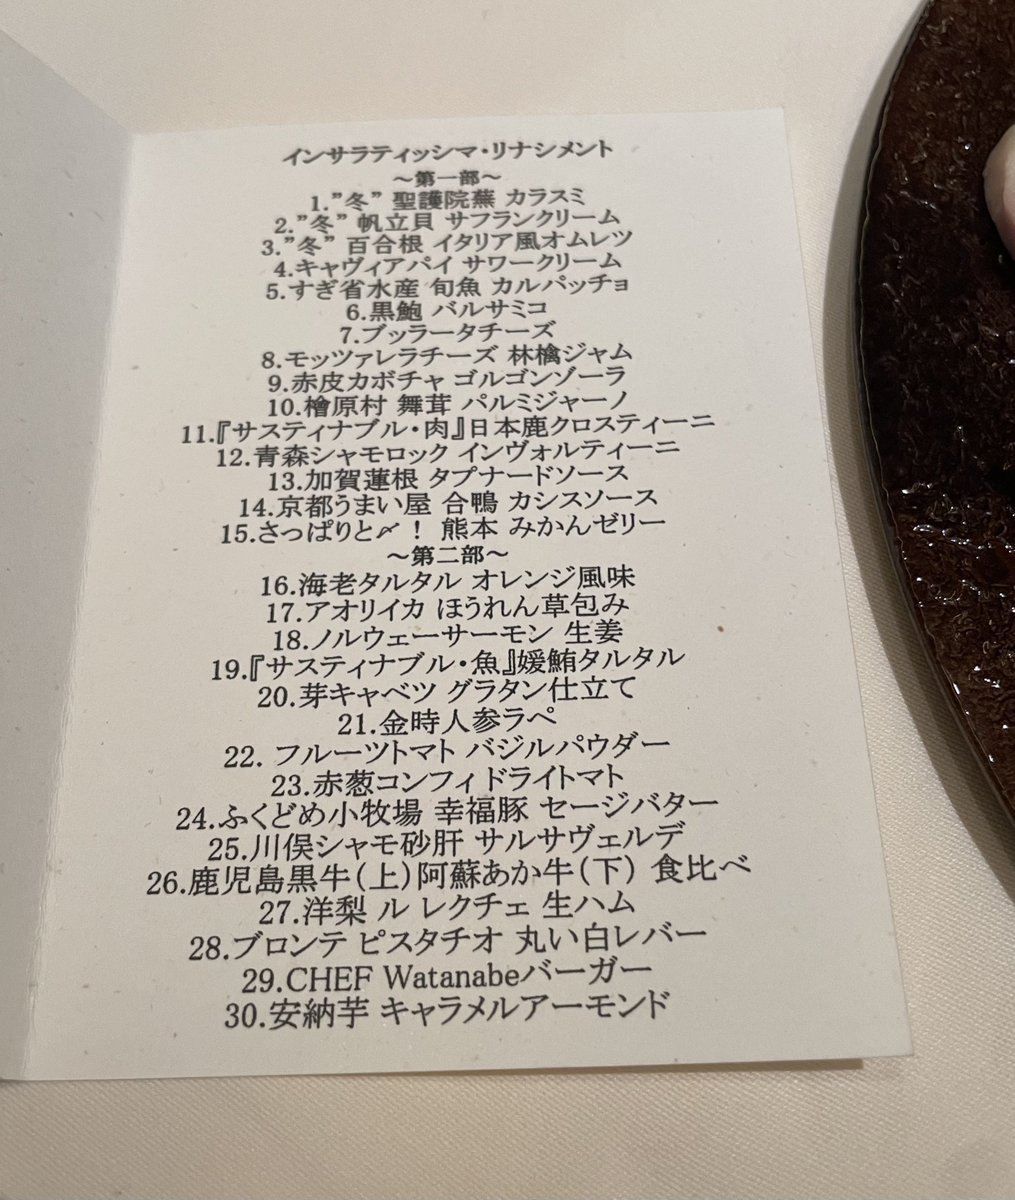 インサラティッシマ・リナシメント
～第一部～
1.”冬” 聖護院蕪 カラスミ
2.”冬” 帆立貝 サフランクリーム
3.”冬” 百合根 イタリア風オムレツ
4.キャヴィアパイ サワークリーム
5.すぎ省水産 旬魚 カルパッチョ
6.黒鮑 バルサミコ
7.ブッラータチーズ
8.モッツァレラチーズ 林檎ジャム
9.赤皮カボチャ ゴルゴンゾーラ
10.檜原村 舞茸 パルミジャーノ
11.『サスティナブル・肉』日本鹿クロスティーニ
12.青森シャモロック インヴォルティーニ
13.加賀蓮根 タプナードソース
14.京都うまい屋 合鴨 カシスソース
15.さっぱりと〆！ 熊本 みかんゼリー
～第二部～
16.海老タルタル オレンジ風味
17.アオリイカ ほうれん草包み
18.ノルウェーサーモン 生姜
19.『サスティナブル・魚』媛鮪タルタル
20.芽キャベツ グラタン仕立て
21.金時人参ラペ
22. フルーツトマト バジルパウダー
23.赤葱コンフィ ドライトマト
24.ふくどめ小牧場 幸福豚 セージバター
25.川俣シャモ砂肝 サルサヴェルデ
26.鹿児島黒牛(上)阿蘇あか牛(下) 食比べ
27.洋梨 ル レクチェ 生ハム
28.ブロンテ ピスタチオ 丸い白レバー
29.CHEF Watanabeバーガー
30.安納芋 キャラメルアーモンド